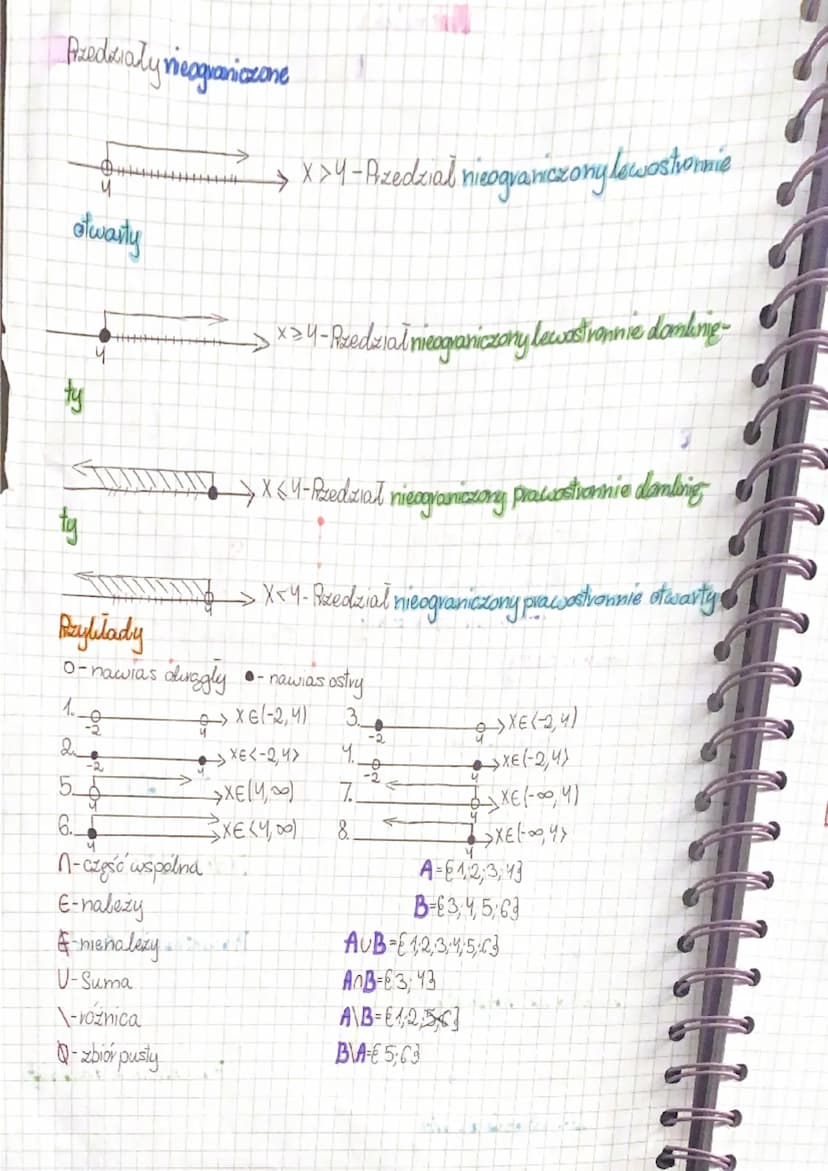 Przedziały nieograniczone
4
x > 4 - Przedział nieograniczony lewostronnie
otwarty
4
x ≥ 4 - Przedział nieograniczony lewostronnie domknię-
ty
x ≤ 4 - Przedział nieograniczony prawostronnie domknię
ty
x < 4 - Przedział nieograniczony prawostronnie otwarty
Przykłady
○ - nawias okrągły ● - nawias ostry
1. -2 4 x∈(-2,4) 3. -2 4 x∈<-2,4)
2. -2 4 x∈<-2,4> 4. -2 4 x∈(-2,4>
5. 4 x∈(4,∞) 7. 4 x∈(-∞,4)
6. 4 x∈<4,∞) 8. 4 x∈(-∞,4>
∩ - część wspólna A={1;2;3;4}
∈ - należy B={3;4;5;6}
∉ - nienależy A∪B={1;2;3;4;5;6}
∪ - Suma A∩B={3;4}
\ - różnica A\B={1;2;5;6}
Ø - zbiór pusty B\A={5;6}